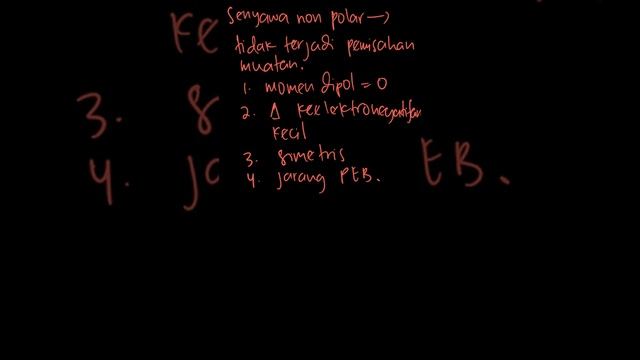 Senyawa non polar →
tidak terjadi pemisahan
muatan.
1. momen dipol = 0
2. Δ keelektronegatifan
kecil
3. simetris
4. jarang PEB.